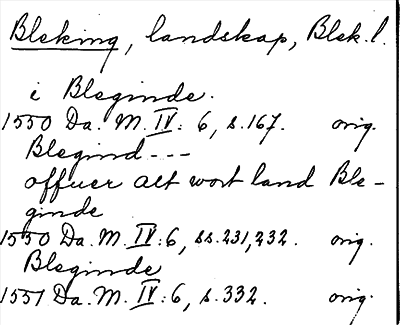 Bleking, landskap, Blek.l.
i Bleginde.
1550 Da. M. IV: 6, s.167. orig.
Blegind---
offuer alt wort land Ble-
ginde
1550 Da. M. IV:6, ss.231,232. orig.
Bleginde
1551 Da. M. IV:6, s.332. orig.